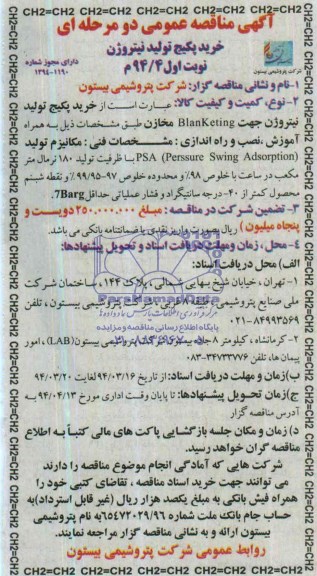 آگهی مناقصه عمومی دو مرحله ای
خرید پکیج تولید نیتروژن
نوبت اول ۹۴/۴م
دارای مجوز شماره
۱۳۹۴-۱۱۹۰
شرکت پتروشیمی بیستون
۱-نام و نشانی مناقصه گزار: شرکت پتروشیمی بیستون
۲-نوع، کمیت و کیفیت کالا: عبارت است از خرید پکیج تولید
نیتروژن جهت BlanKeting مخازن طبق مشخصات ذیل به همراه
آموزش ،نصب و راه اندازی : مشخصات فنی : مکانیزم تولید
PSA (Perssure Swing Adsorption) با ظرفیت تولید ۱۸۰ نرمال متر
مکعب در ساعت با خلوص ۹۸٪ و محدوده خلوص ۹۷-۹۹/۹۵٪ و نقطه شبنم
محصول کمتر از ۴۰- درجه سانتیگراد و فشار عملیاتی حداقل 7Barg
۳- تضمین شرکت در مناقصه : مبلغ ۲۵۰.۰۰۰.۰۰۰ دویست و
پنجاه میلیون ) ریال بصورت واریز نقدی یا ضمانتنامه بانکی می باشد.
۴- محل ، زمان و مهلت دریافت اسناد و تحویل پیشنهادها:
الف) محل دریافت اسناد:
۱- تهران ، خیابان شیخ بهایی شمالی ، پلاک ۱۴۴، ساختمان شرکت
ملی صنایع پتروشیمی ، شرکت پتروشیمی بیستون ، تلفن
۰۲۱-۸۴۹۹۳۵۶۹
۲- کرمانشاه ، کیلومتر ۸ جاده بیستون شرکت پتروشیمی بیستون (LAB) ، امور
پیمان ها، تلفن ۳۴۷۳۳۷۷۶-۰۸۳
ب)زمان و مهلت دریافت اسناد: از تاریخ ۹۴/۰۳/۱۶ لغایت ۹۴/۰۳/۲۰
ج)زمان تحویل پیشنهادها: تا پایان وقت اداری مورخ ۹۴/۰۴/۱۳ به
آدرس مناقصه گزار
د) زمان و مکان جلسه بازگشایی پاکت های مالی کتباً به اطلاع
مناقصه گران خواهد رسید.
شرکت هایی که آمادگی انجام موضوع مناقصه را دارند
می توانند جهت خرید اسناد مناقصه ، تقاضای کتبی خود را
همراه فیش بانکی به مبلغ یکصد هزار ریال (غیر قابل استرداد)به
حساب جام بانک ملت شماره ۶۵۴۷۲۰۲۹/۹۶به نام پتروشیمی
بیستون ارائه و به نشانی مناقصه گزار مراجعه نمایند.
روابط عمومی شرکت پتروشیمی بیستون
CH2=CH2 CH2=CH2 CH2=CH2 CH2=CH2
ParsNamadData
پایگاه اطلاع رسانی مناقصه و مزایده